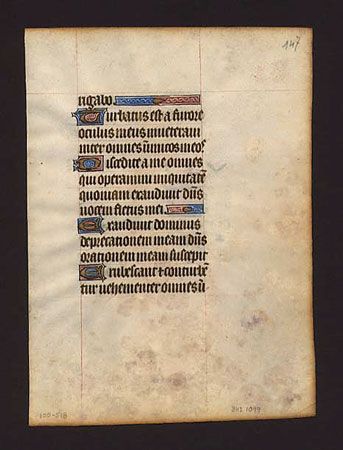 147
rigabo.
Turbatus est a furore
oculus meus inveteravi
inter omnes inimicos meos
Discedite a me omnes
qui operamini iniquitatē
quoniam exaudivit dn̄s
vocem fletus mei.
Exaudivit dominus
deprecationem meam dn̄s
orationem meam suscepit
Erubescant et conturbē
tur vehementer omnes
100-518